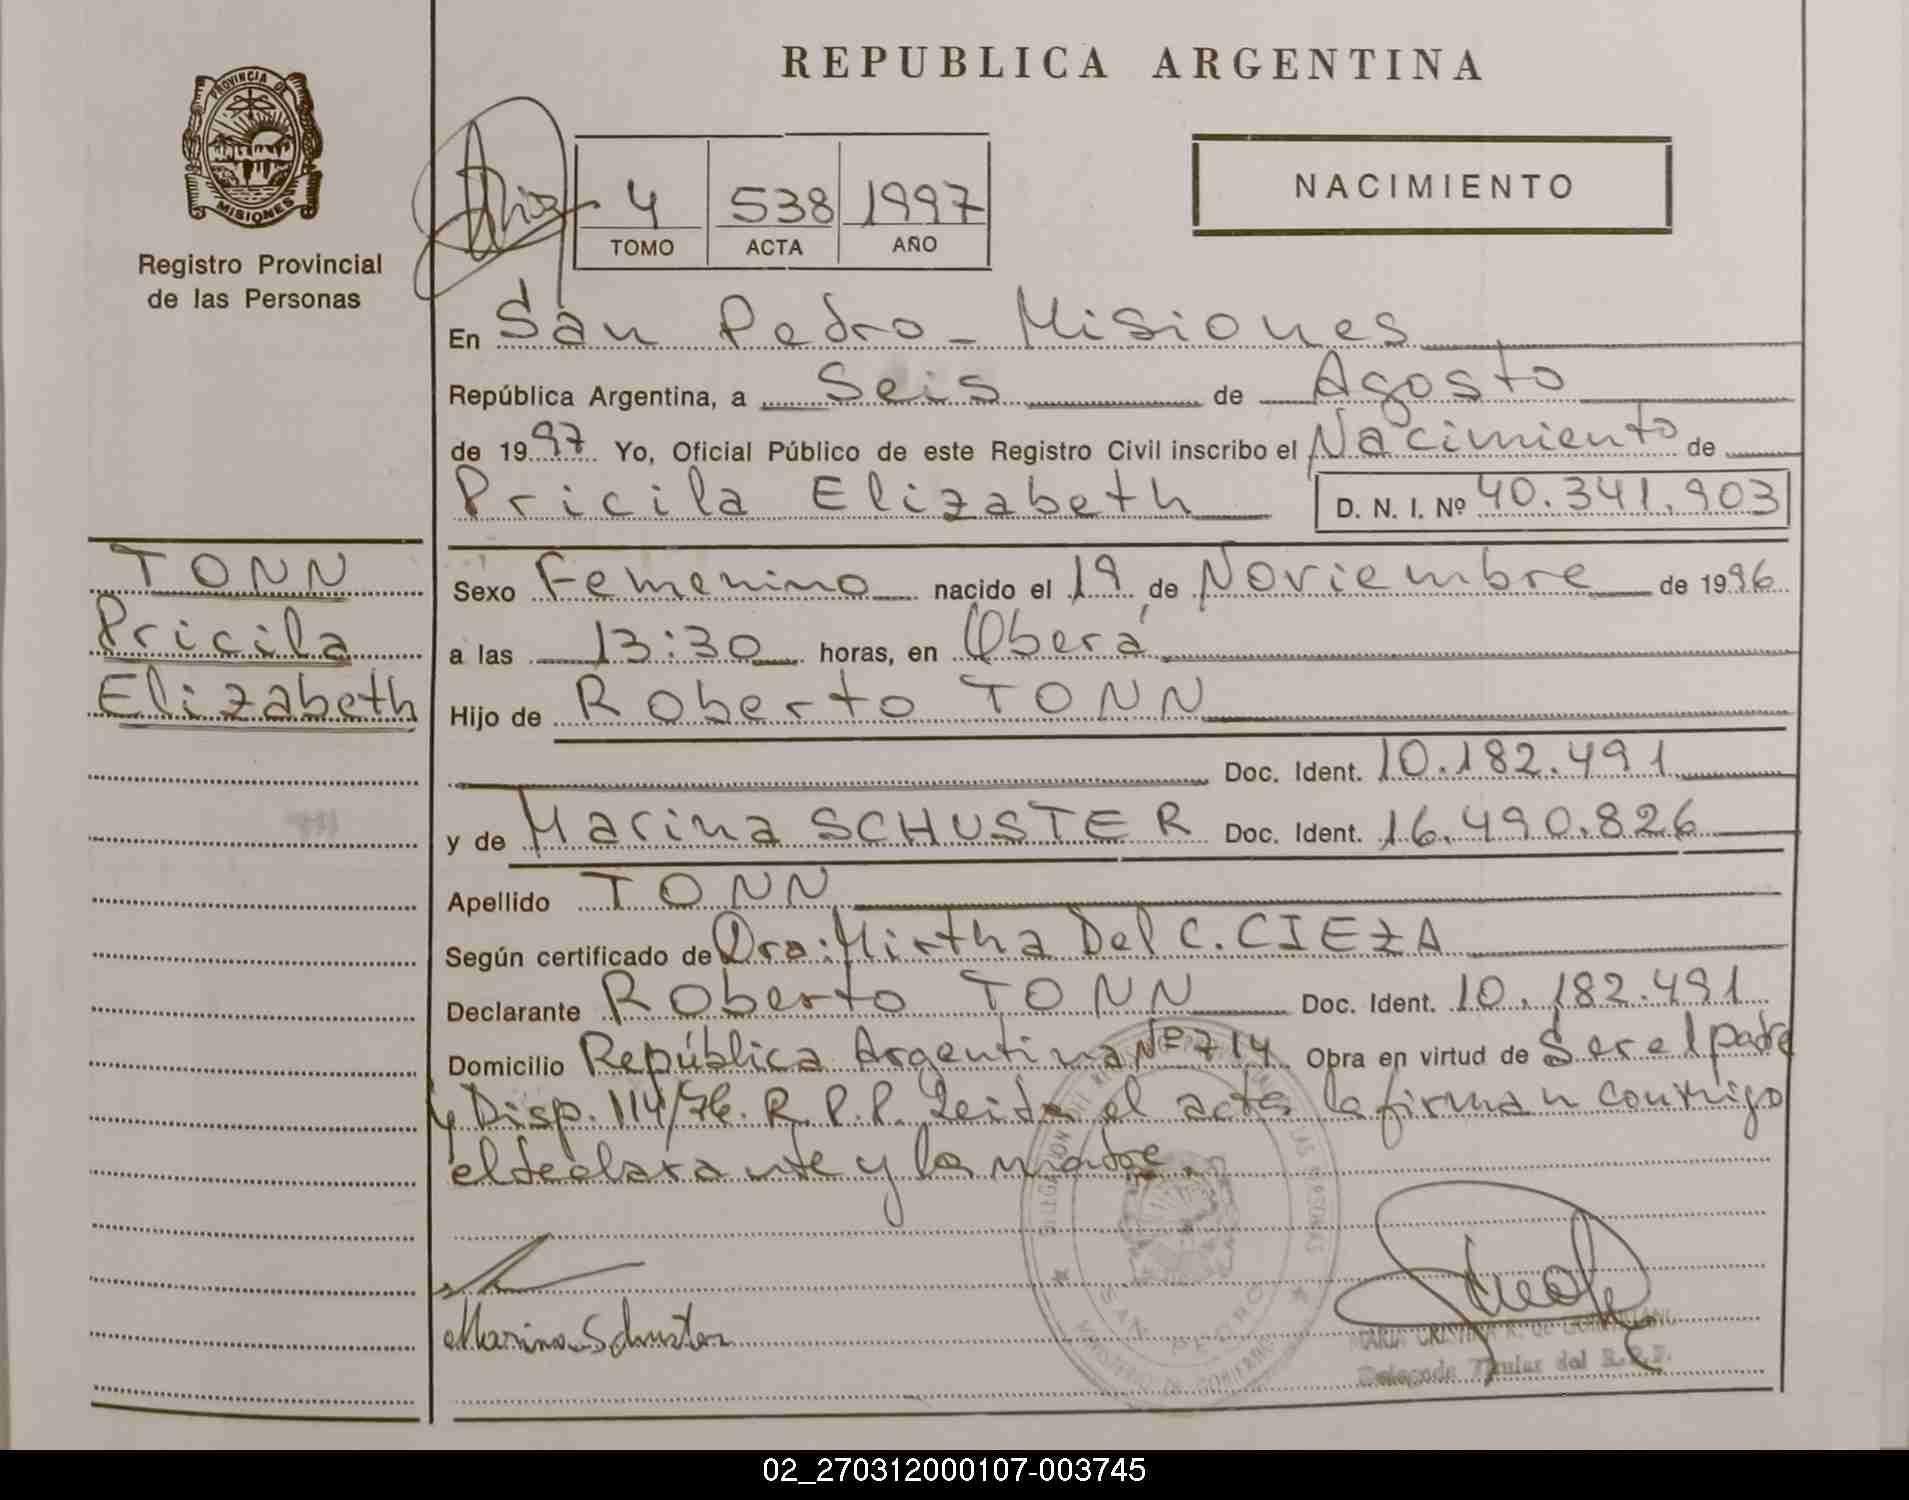 REPUBLICA ARGENTINA
PROVINCIA DE
MISIONES
Registro Provincial
de las Personas
4 538 1997
TOMO ACTA AÑO
NACIMIENTO
En San Pedro - Misiones
República Argentina, a Seis de Agosto
de 1997 Yo, Oficial Público de este Registro Civil inscribo el Nacimiento de
Pricila Elizabeth D. N. I. Nº 40.341.903
TONN
Pricila
Elizabeth
Sexo Femenino nacido el 19 de Noviembre de 1996
a las 13:30 horas, en Oberá
Hijo de Roberto TONN
Doc. Ident. 10.182.491
y de Marina SCHUSTER Doc. Ident. 16.490.826
Apellido TONN
Según certificado de Dra. Mirtha Del C. CIEZA
Declarante Roberto TONN Doc. Ident. 10.182.491
Domicilio República Argentina Nº 714 Obra en virtud de Ser el padre
y Disp. 114/76. R.P.P. Leida el acta la firman conmigo
el declarante y la madre.
Marina Schuster
SAN PEDRO
MINISTERIO DE GOBIERNO
MARIA CRISTINA R. de
Titular del R.P.P.
02_270312000107-003745